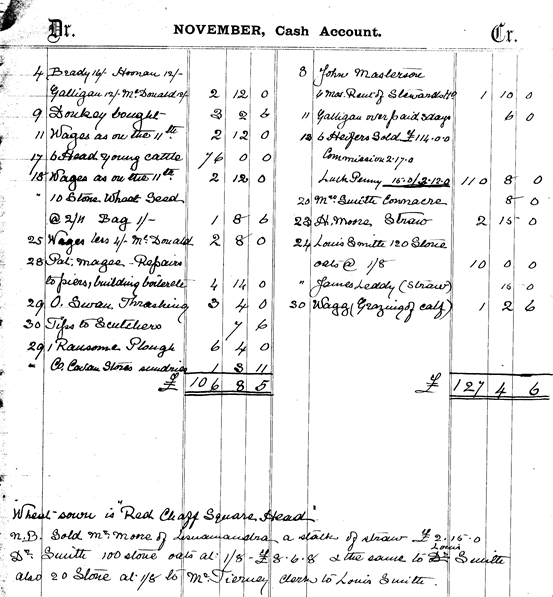 Dr. NOVEMBER, Cash Account. Cr.
4 Brady 14/- Hoonan 12/-
Galligan 12/- McDonald 12/- 2 12 0
9 Donkey bought 3 2 6
11 Wages as on the 11th 2 12 0
17 6 Head young cattle 76 0 0
18 Wages as on the 11th. 2 12 0
" 10 Stone Wheat Seed
@ 2/11 Bag 1/- 1 8 6
25 Wages less 4/- McDonald 2 8 0
28 Pat. Magee - Repairs
to piers, building 4 14 0
29 O. Swan Thrashing 3 4 0
30 Tips to Scutchers 7 6
29 1 Ransome Plough 6 4 0
" Co. Cavan Stores sundries 1 3 11
£ 106 8 5
3 John Masterson
6 Mos. Rent of Stewards 1 10 0
11 Galligan over paid 3 days 6 0
13 6 Heifers Sold £114.0.0
Commission 2.17.0
Luck Penny 15.0/3.12.0 110 8 0
20 Mrs Smith Connacre 8 0
23 H. Moore Straw 2 15 0
24 Louis Smith 120 Stone
oats @ 1/8 10 0 0
" James Leddy (Straw) 15 0
30 Wagg (Grazing of calf) 1 2 6
£ 127 4 6
Wheat sown is "Red Chaff Square Head"
N.B. Sold Mr. Moore of Lisnamandra a stack of straw £2.15.0
Dr. Smith 100 stone oats at 1/8 - £8.6.8 & the same to Louis Smith
also 20 Stone at 1/8 to Mr. Tierney clerk to Louis Smith.